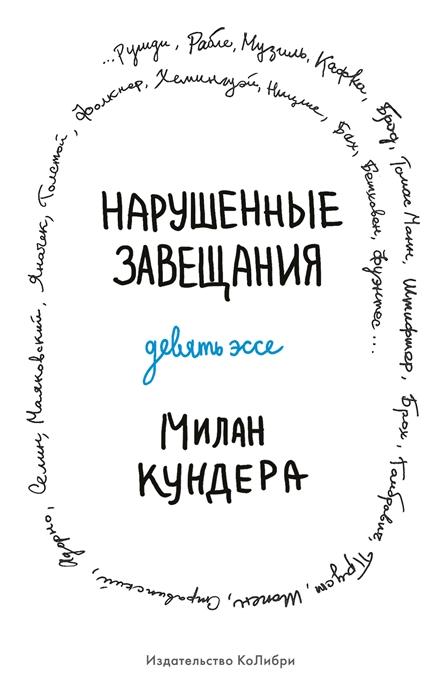 ...Рушди, Рабле, Музиль, Кафка, Брод, Томас Манн, Штифтер, Брох, Гомбрович, Пруст, Шопен, Стравинский, Адорно, Селин, Маяковский, Яначек, Толстой, Фолкнер, Хемингуэй, Ницше, Бах, Бетховен, Фуэнтес...
НАРУШЕННЫЕ
ЗАВЕЩАНИЯ
девять эссе
МИЛАН
КУНДЕРА
Издательство КоЛибри